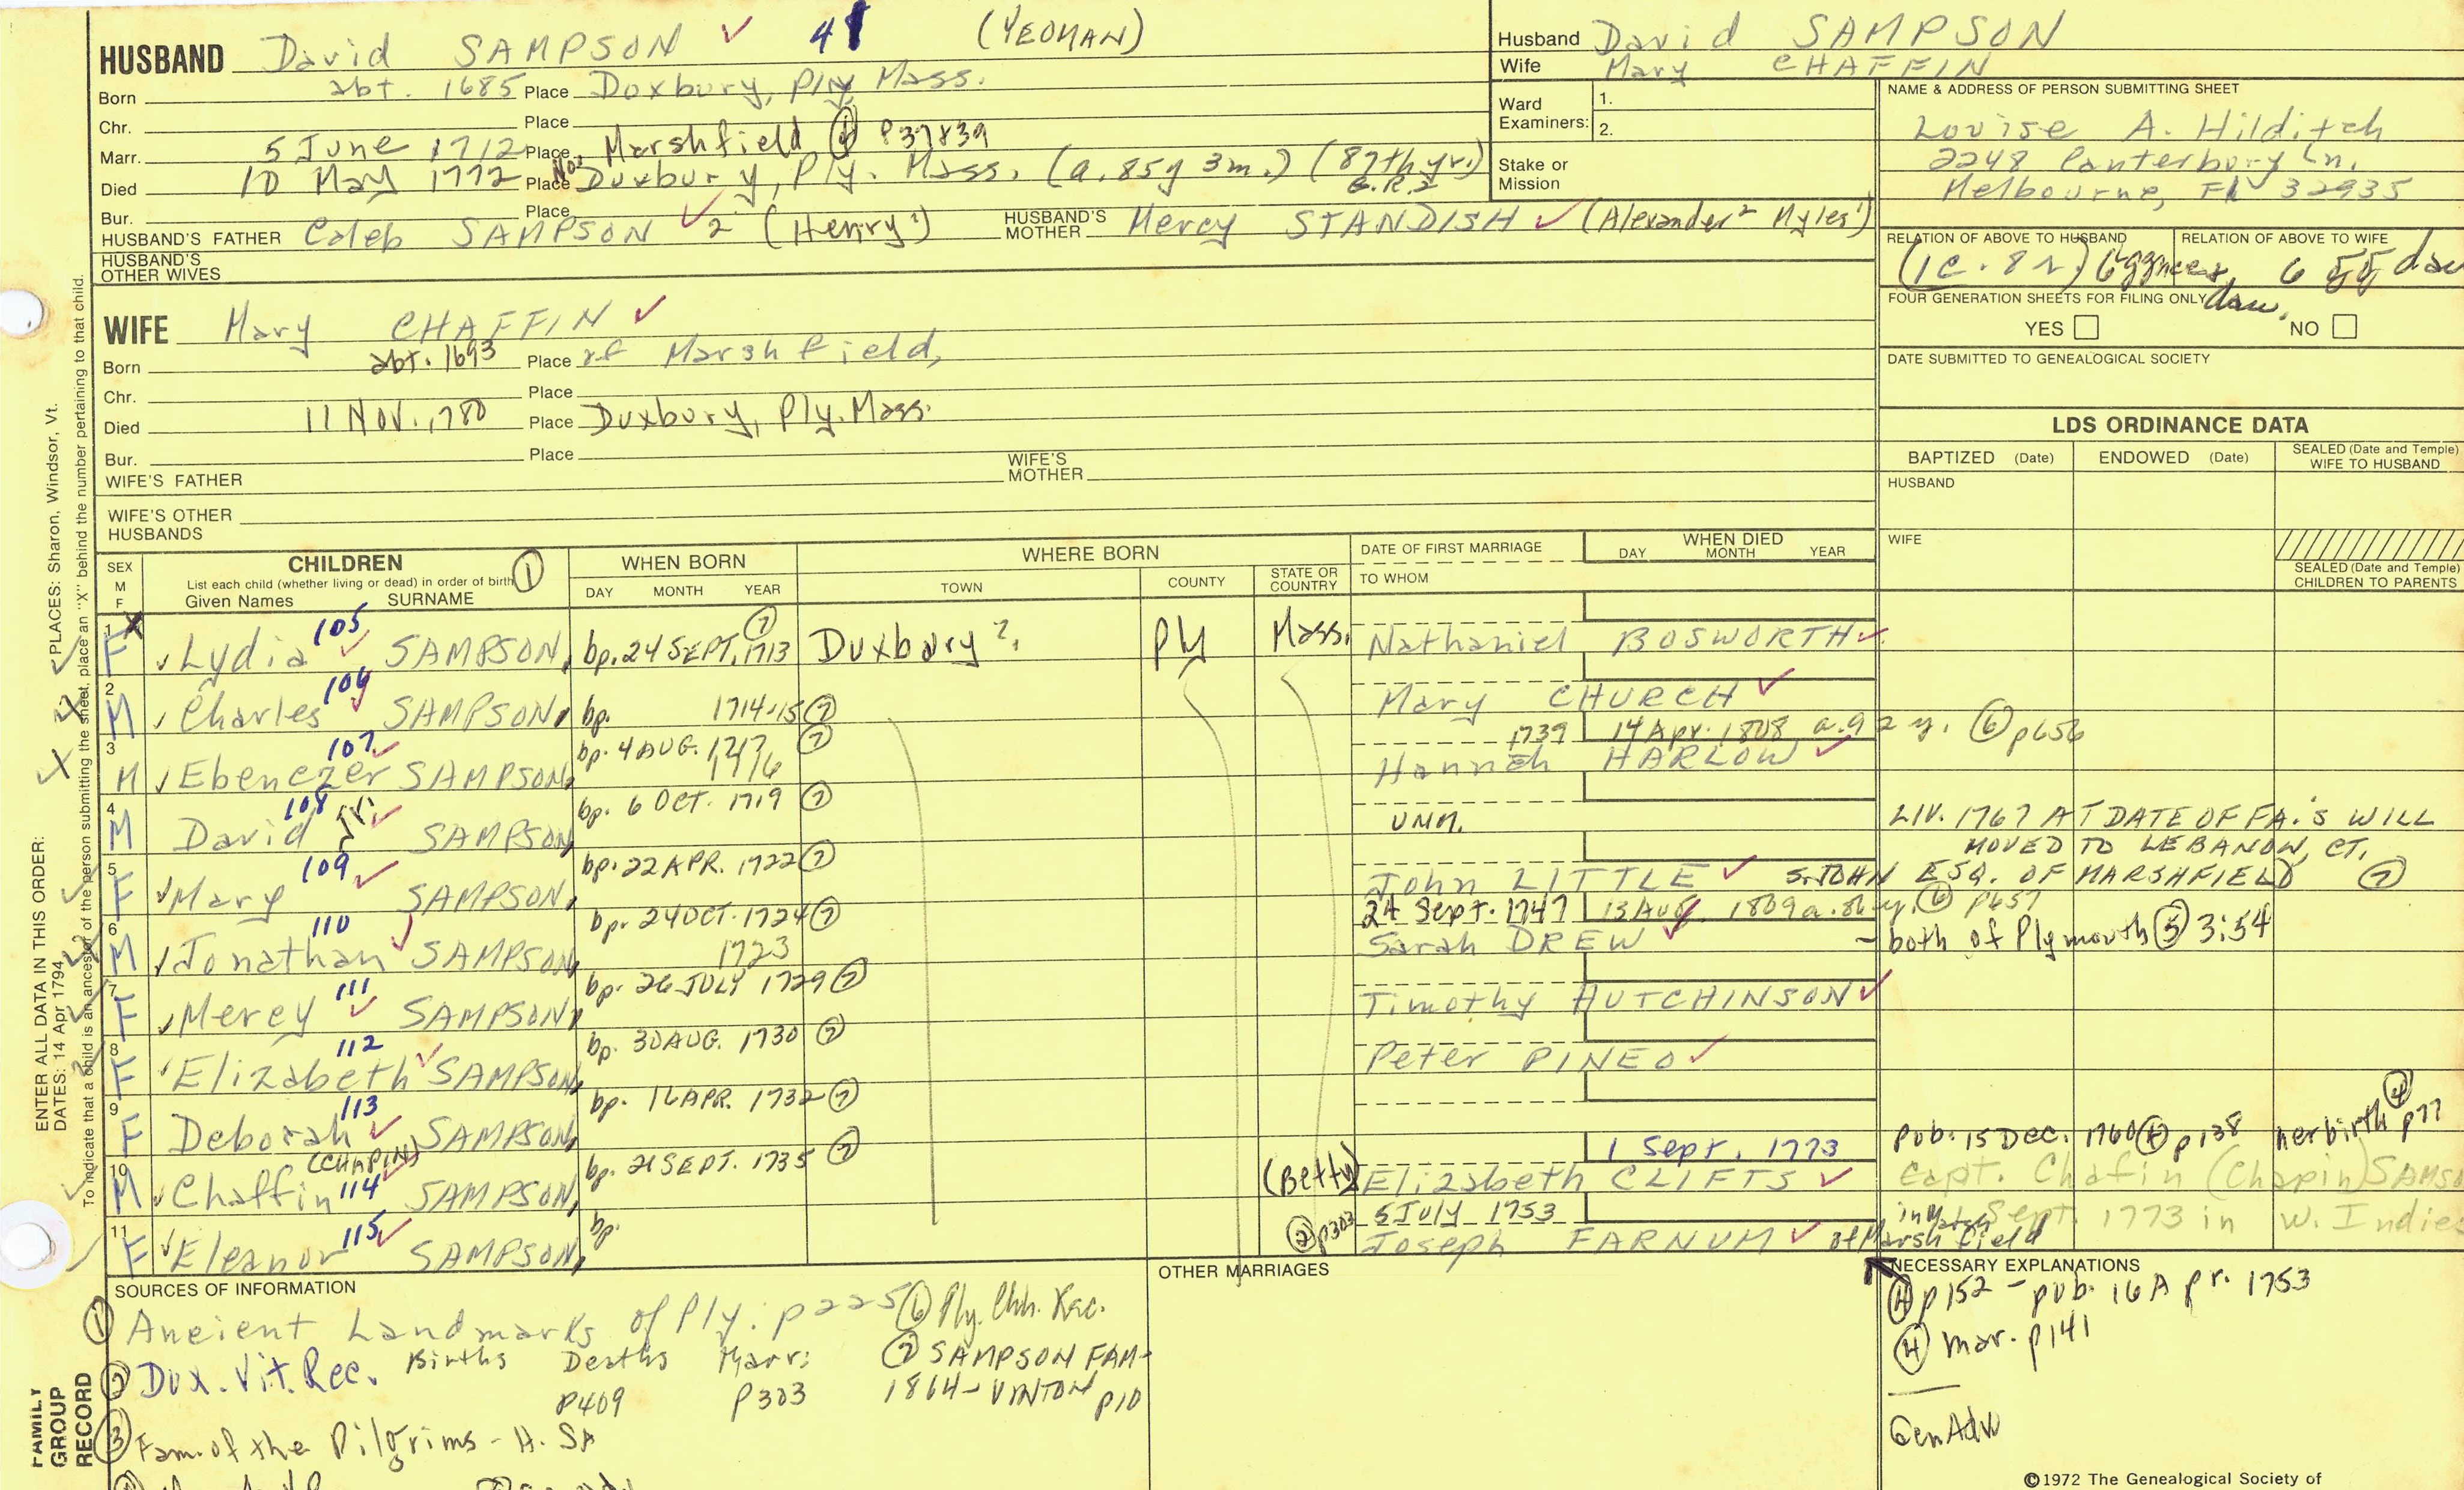 HUSBAND David SAMPSON ✓ 48 (YEOMAN)
Born abt. 1685 Place Duxbury, Ply. Mass.
Chr. Place
Marr. 5 June 1712 Place Marshfield P37&39
Died 10 May 1772 Place Duxbury, Ply. Mass. (a. 85y 3m.) (87th yr.) G.R.2
Bur. Place
HUSBAND'S FATHER Caleb SAMPSON ✓ 2 (Henry¹) HUSBAND'S MOTHER Mercy STANDISH ✓ (Alexander² Myles¹)
HUSBAND'S OTHER WIVES
WIFE Mary CHAFFIN ✓
Born abt. 1693 Place of Marshfield,
Chr. Place
Died 11 NOV. 1780 Place Duxbury, Ply. Mass.
Bur. Place
WIFE'S FATHER WIFE'S MOTHER
WIFE'S OTHER HUSBANDS
Husband David SAMPSON
Wife Mary CHAFFIN
Ward Examiners: 1. 2.
Stake or Mission
NAME & ADDRESS OF PERSON SUBMITTING SHEET
Louise A. Hilditch
2248 Canterbury Ln.
Melbourne, FL 32935
RELATION OF ABOVE TO HUSBAND RELATION OF ABOVE TO WIFE
(1c. 8r) 6 dau
FOUR GENERATION SHEETS FOR FILING ONLY
YES NO
DATE SUBMITTED TO GENEALOGICAL SOCIETY
LDS ORDINANCE DATA
BAPTIZED (Date) ENDOWED (Date) SEALED (Date and Temple) WIFE TO HUSBAND
HUSBAND
WIFE
SEALED (Date and Temple) CHILDREN TO PARENTS
SEX M F CHILDREN ① List each child (whether living or dead) in order of birth Given Names SURNAME
WHEN BORN DAY MONTH YEAR
WHERE BORN TOWN COUNTY STATE OR COUNTRY
DATE OF FIRST MARRIAGE TO WHOM
WHEN DIED DAY MONTH YEAR
1 X F ✓ Lydia 105 ✓ SAMPSON, bp. 24 SEPT. 1713 ⑦ Duxbury ?. Ply Mass. Nathaniel BOSWORTH ✓
2 M ✓ Charles 106 ✓ SAMPSON, bp. 1714-15 ⑦ Mary CHURCH ✓
3 M ✓ Ebenezer 107 ✓ SAMPSON, bp. 4 AUG. 1717 ⑦ 1716 1739 14 Apr. 1808 a. 92 y. ⑥ p656 Hannah HARLOW ✓
4 M David 108 ✓ SAMPSON bp. 6 OCT. 1719 ⑦ unm. LIV. 1767 AT DATE OF FA.'S WILL
MOVED TO LEBANON, CT.
5 F ✓ Mary 109 ✓ SAMPSON, bp. 22 APR. 1722 ⑦ John LITTLE ✓ S. JOHN ESQ. OF MARSHFIELD ⑦
6 M ✓ Jonathan 110 ✓ SAMPSON, bp. 24 OCT. 1724 ⑦ 1723 24 Sept. 1747 13 Aug. 1809 a. 86 y. ⑥ p657
Sarah DREW ✓ - both of Plymouth ⑤ 3:54
7 F ✓ Mercy 111 ✓ SAMPSON, bp. 26 JULY 1729 ⑦ Timothy HUTCHINSON ✓
8 F ✓ Elizabeth 112 ✓ SAMPSON, bp. 30 AUG. 1730 ⑦ Peter PINEO ✓
9 F Deborah 113 ✓ SAMPSON, bp. 16 APR. 1732 ⑦
10 M ✓ Chaffin (CHAPIN) 114 ✓ SAMPSON, bp. 21 SEPT. 1735 ⑦ 1 Sept. 1773 pub. 15 Dec. 1760 ④ p138 her birth ④ p77
(Betty) Elizabeth CLIFTS ✓ Capt. Chafin (Chapin) SAMSO
Sept. 1773 in W. Indies
11 F ✓ Eleanor 115 ✓ SAMPSON, bp. ② p303 5 July 1753 Joseph FARNUM ✓ of Marshfield
SOURCES OF INFORMATION
① Ancient Landmarks of Ply. p225 ⑥ Ply. Chh. Rec.
② Dux. Vit. Rec. Births Deaths P409 Marr: P303 ⑦ SAMPSON FAM- 1864 - VINTON p10
③ Fam. of the Pilgrims - H. SA
OTHER MARRIAGES
NECESSARY EXPLANATIONS
④ p152 - pub. 16 Apr. 1753
④ mar. p141
GenAdv
©1972 The Genealogical Society of
ENTER ALL DATA IN THIS ORDER:
DATES: 14 Apr 1794
PLACES: Sharon, Windsor, Vt.
To indicate that a child is an ancestor of the person submitting the sheet, place an "X" behind the number pertaining to that child.
FAMILY GROUP RECORD